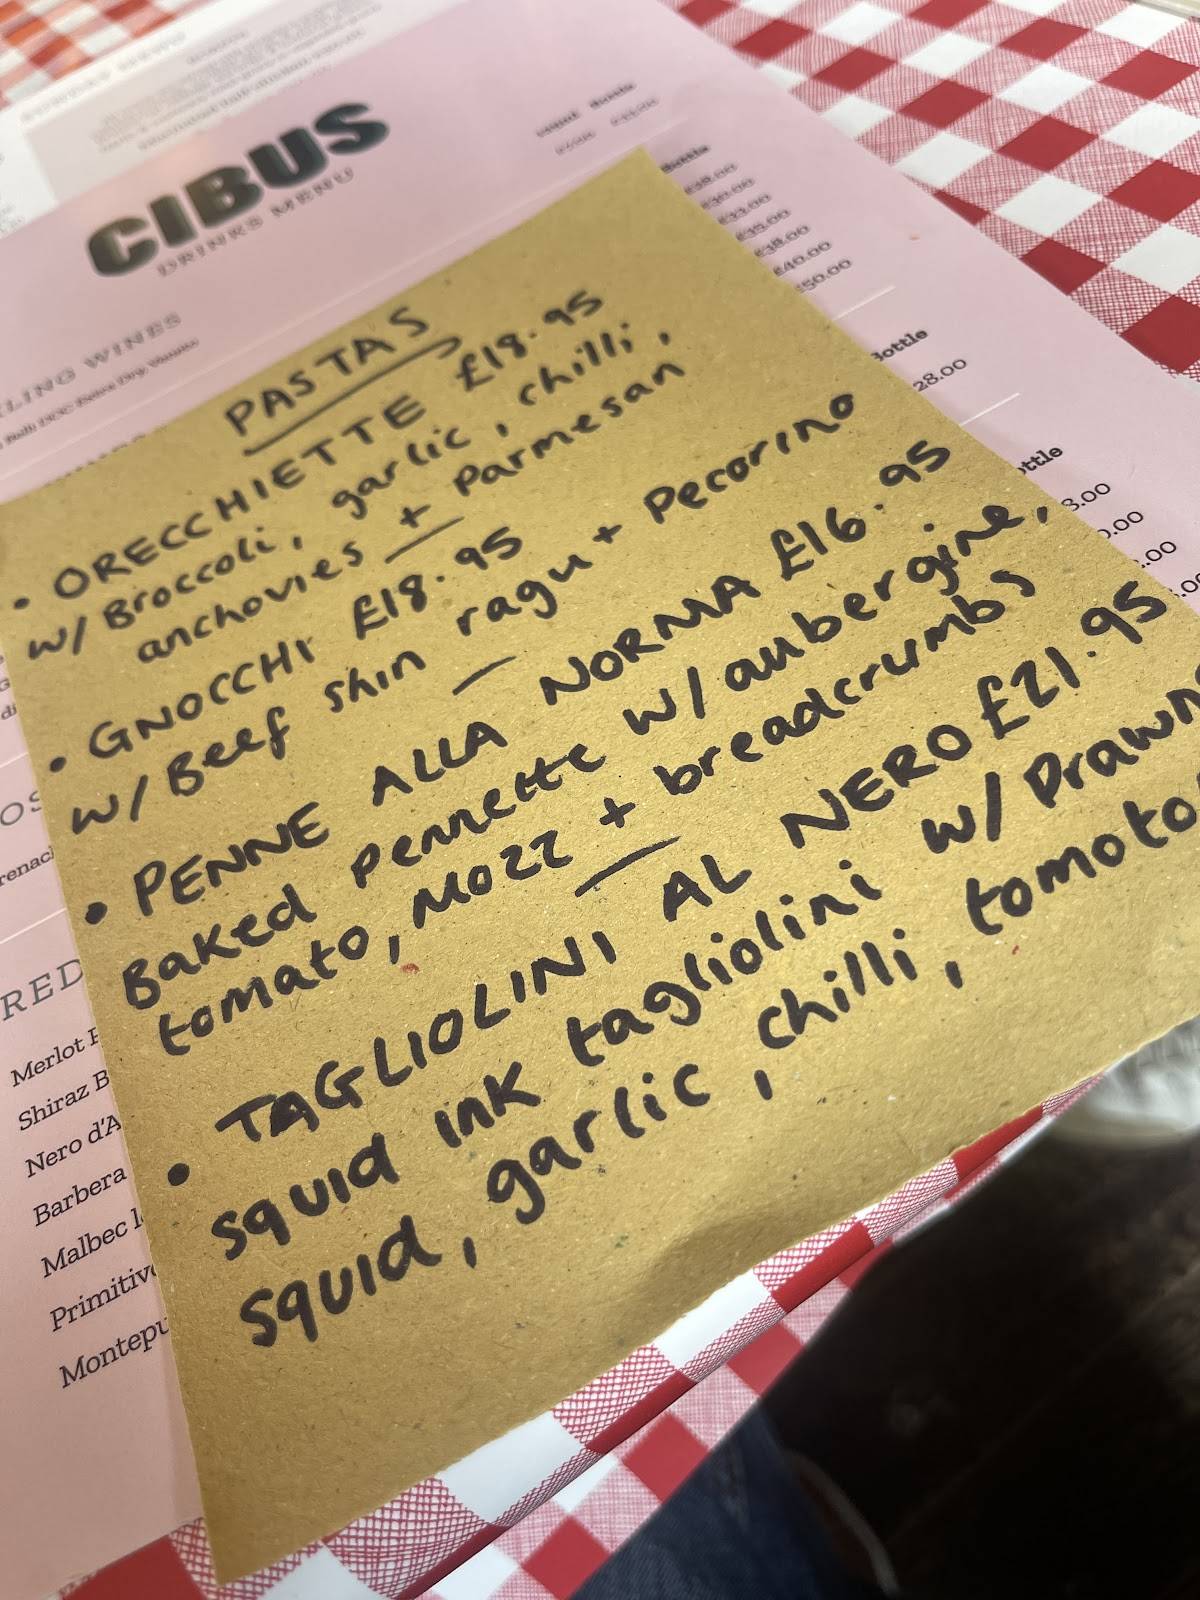 CIBUS
DRINKS MENU
LING WINES
Bottle
£38.00
£30.00
£33.00
£35.00
£38.00
£40.00
£50.00
Bottle
28.00
ottle
3.00
0.00
.00
PASTAS
• ORECCHIETTE £18.95
w/ Broccoli, garlic, chilli,
anchovies + Parmesan
• GNOCCHI £18.95
w/ Beef shin ragu + Pecorino
• PENNE ALLA NORMA £16.95
Baked pennette w/ aubergine,
tomato, Mozz + breadcrumbs
• TAGLIOLINI AL NERO £21.95
squid ink tagliolini w/ Prawns
squid, garlic, chilli, tomoto
RED
Merlot
Shiraz B
Nero d'A
Barbera
Malbec
Primitivo
Montepu